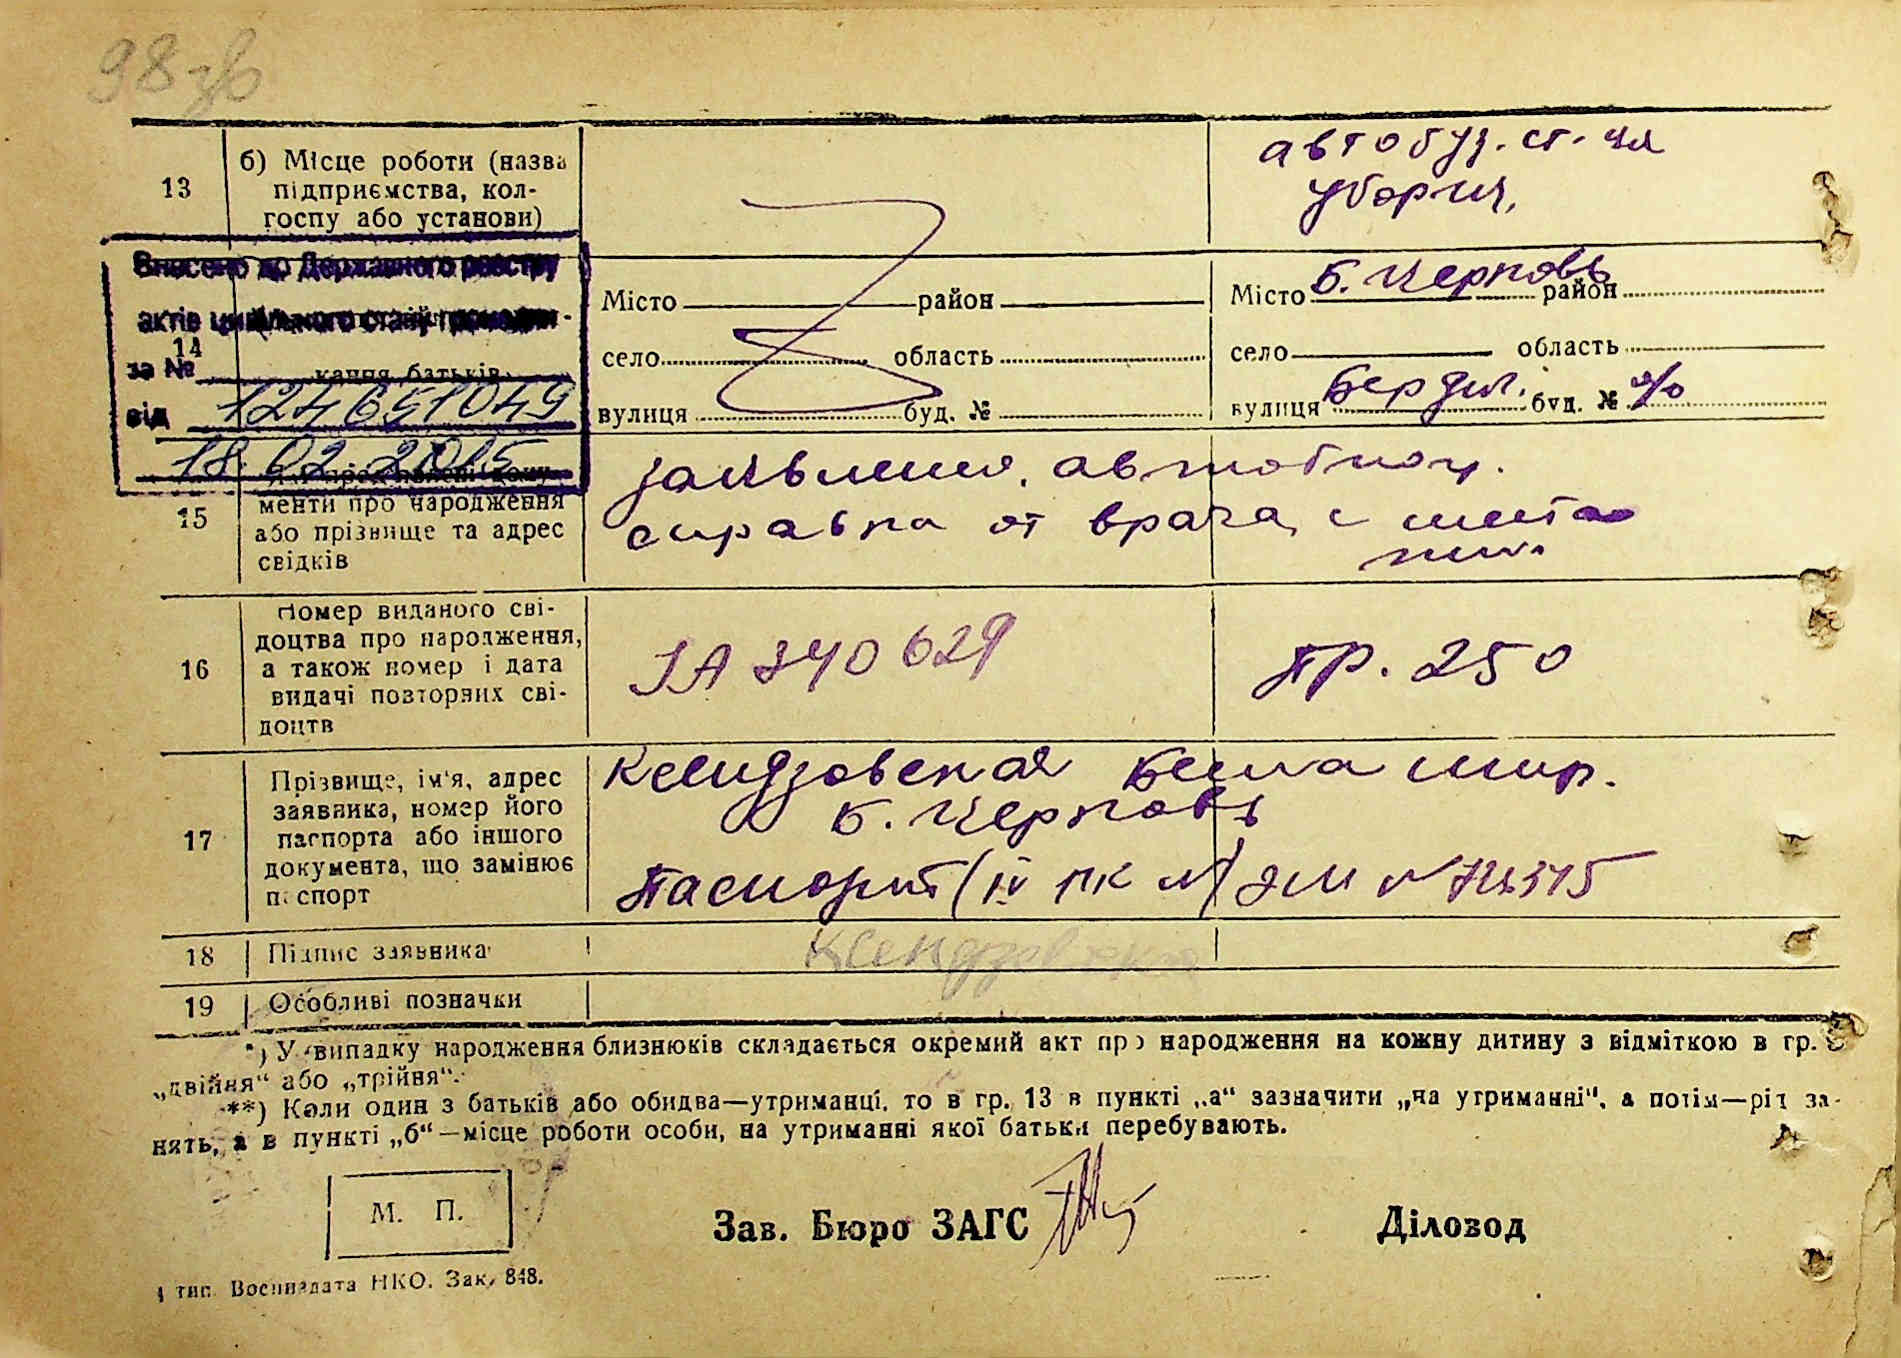 98 зв
13
б) Місце роботи (назва
підприємства, кол-
госпу або установи)
автобуз. ст. ця
уборщ.
Внесено до Державного реєстру
актів цивільного стану громадян
14
за №
кання батьків
від 124651049
18.02.2015
Місто район
село область
вулиця буд. №
Місто Б. Церковь район
село область
вулиця Бердич. буд. №
15
менти про народження
або прізвище та адрес
свідків
справка от врача
16
Номер виданого сві-
доцтва про народження,
а також номер і дата
видачі повторних сві-
доцтв
240629
пр. 250
17
Прізвище, ім'я, адрес
заявника, номер його
паспорта або іншого
документа, що замінює
паспорт
Ксендзовская
Б. Церковь
Паспорт (IV ПК №
18 Підпис заявника
Ксендзовска
19 Особливі позначки
*) У випадку народження близнюків складається окремий акт про народження на кожну дитину з відміткою в гр.
„двійня“ або „трійня“.
**) Коли один з батьків або обидва—утриманці, то в гр. 13 в пункті „а“ зазначити „на утриманні“, а потім—рід за-
нять, а в пункті „б“—місце роботи особи, на утриманні якої батьки перебувають.
М. П.
Зав. Бюро ЗАГС
Діловод
тип. Воениздата НКО. Зак. 848.